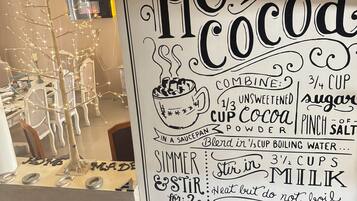 HOT
COCOA
COMBINE:
1/3 CUP
UNSWEETENED
cocoa
POWDER
3/4 CUP
sugar
PINCH OF SALT
IN A SAUCEPAN
Blend in 1/2 CUP BOILING WATER...
SIMMER
& STIR
Stir in 3 1/2 CUPS
MILK
Heat but do not boil
MADE